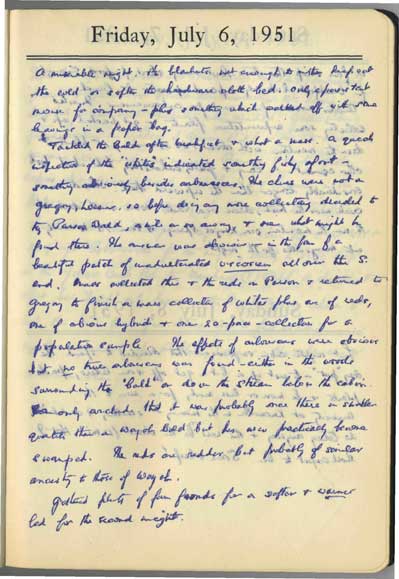 Friday, July 6, 1951
A miserable night. The blankets not enough to either keep out
the cold or soften the hardware cloth bed. Only a persistent
mouse for company - plus something which walked off with some
in a paper bag.
Tackled the Bald after breakfast & what a mess. A quick
inspection of the whites indicated something fishy afoot -
something obviously besides arborescens. The clues were not on
Gregory, however, so before doing any more collecting decided to
try Parson Bald, & see what might be
found there. The answer was obvious - in the form of a
beautiful patch of unadulterated viscosum all over the S.
end. Mass collected this & the reds on Parson & returned to
Gregory to finish a mass collection of whites plus one of reds,
one of obvious hybrids & one 20-pace-collection for a
population sample. The effects of arborescens were obvious
but no true arborescens was found - either in the woods
surrounding the "bald" or down the stream below the cabin.
Can only conclude that it was probably once there in smaller
quantity than on Wayah Bald but has now practically become
swamped. The reds are redder but probably of similar
ancestry to those of Wayah.
Gathered plenty of fern fronds for a softer & warmer
bed for the second night.